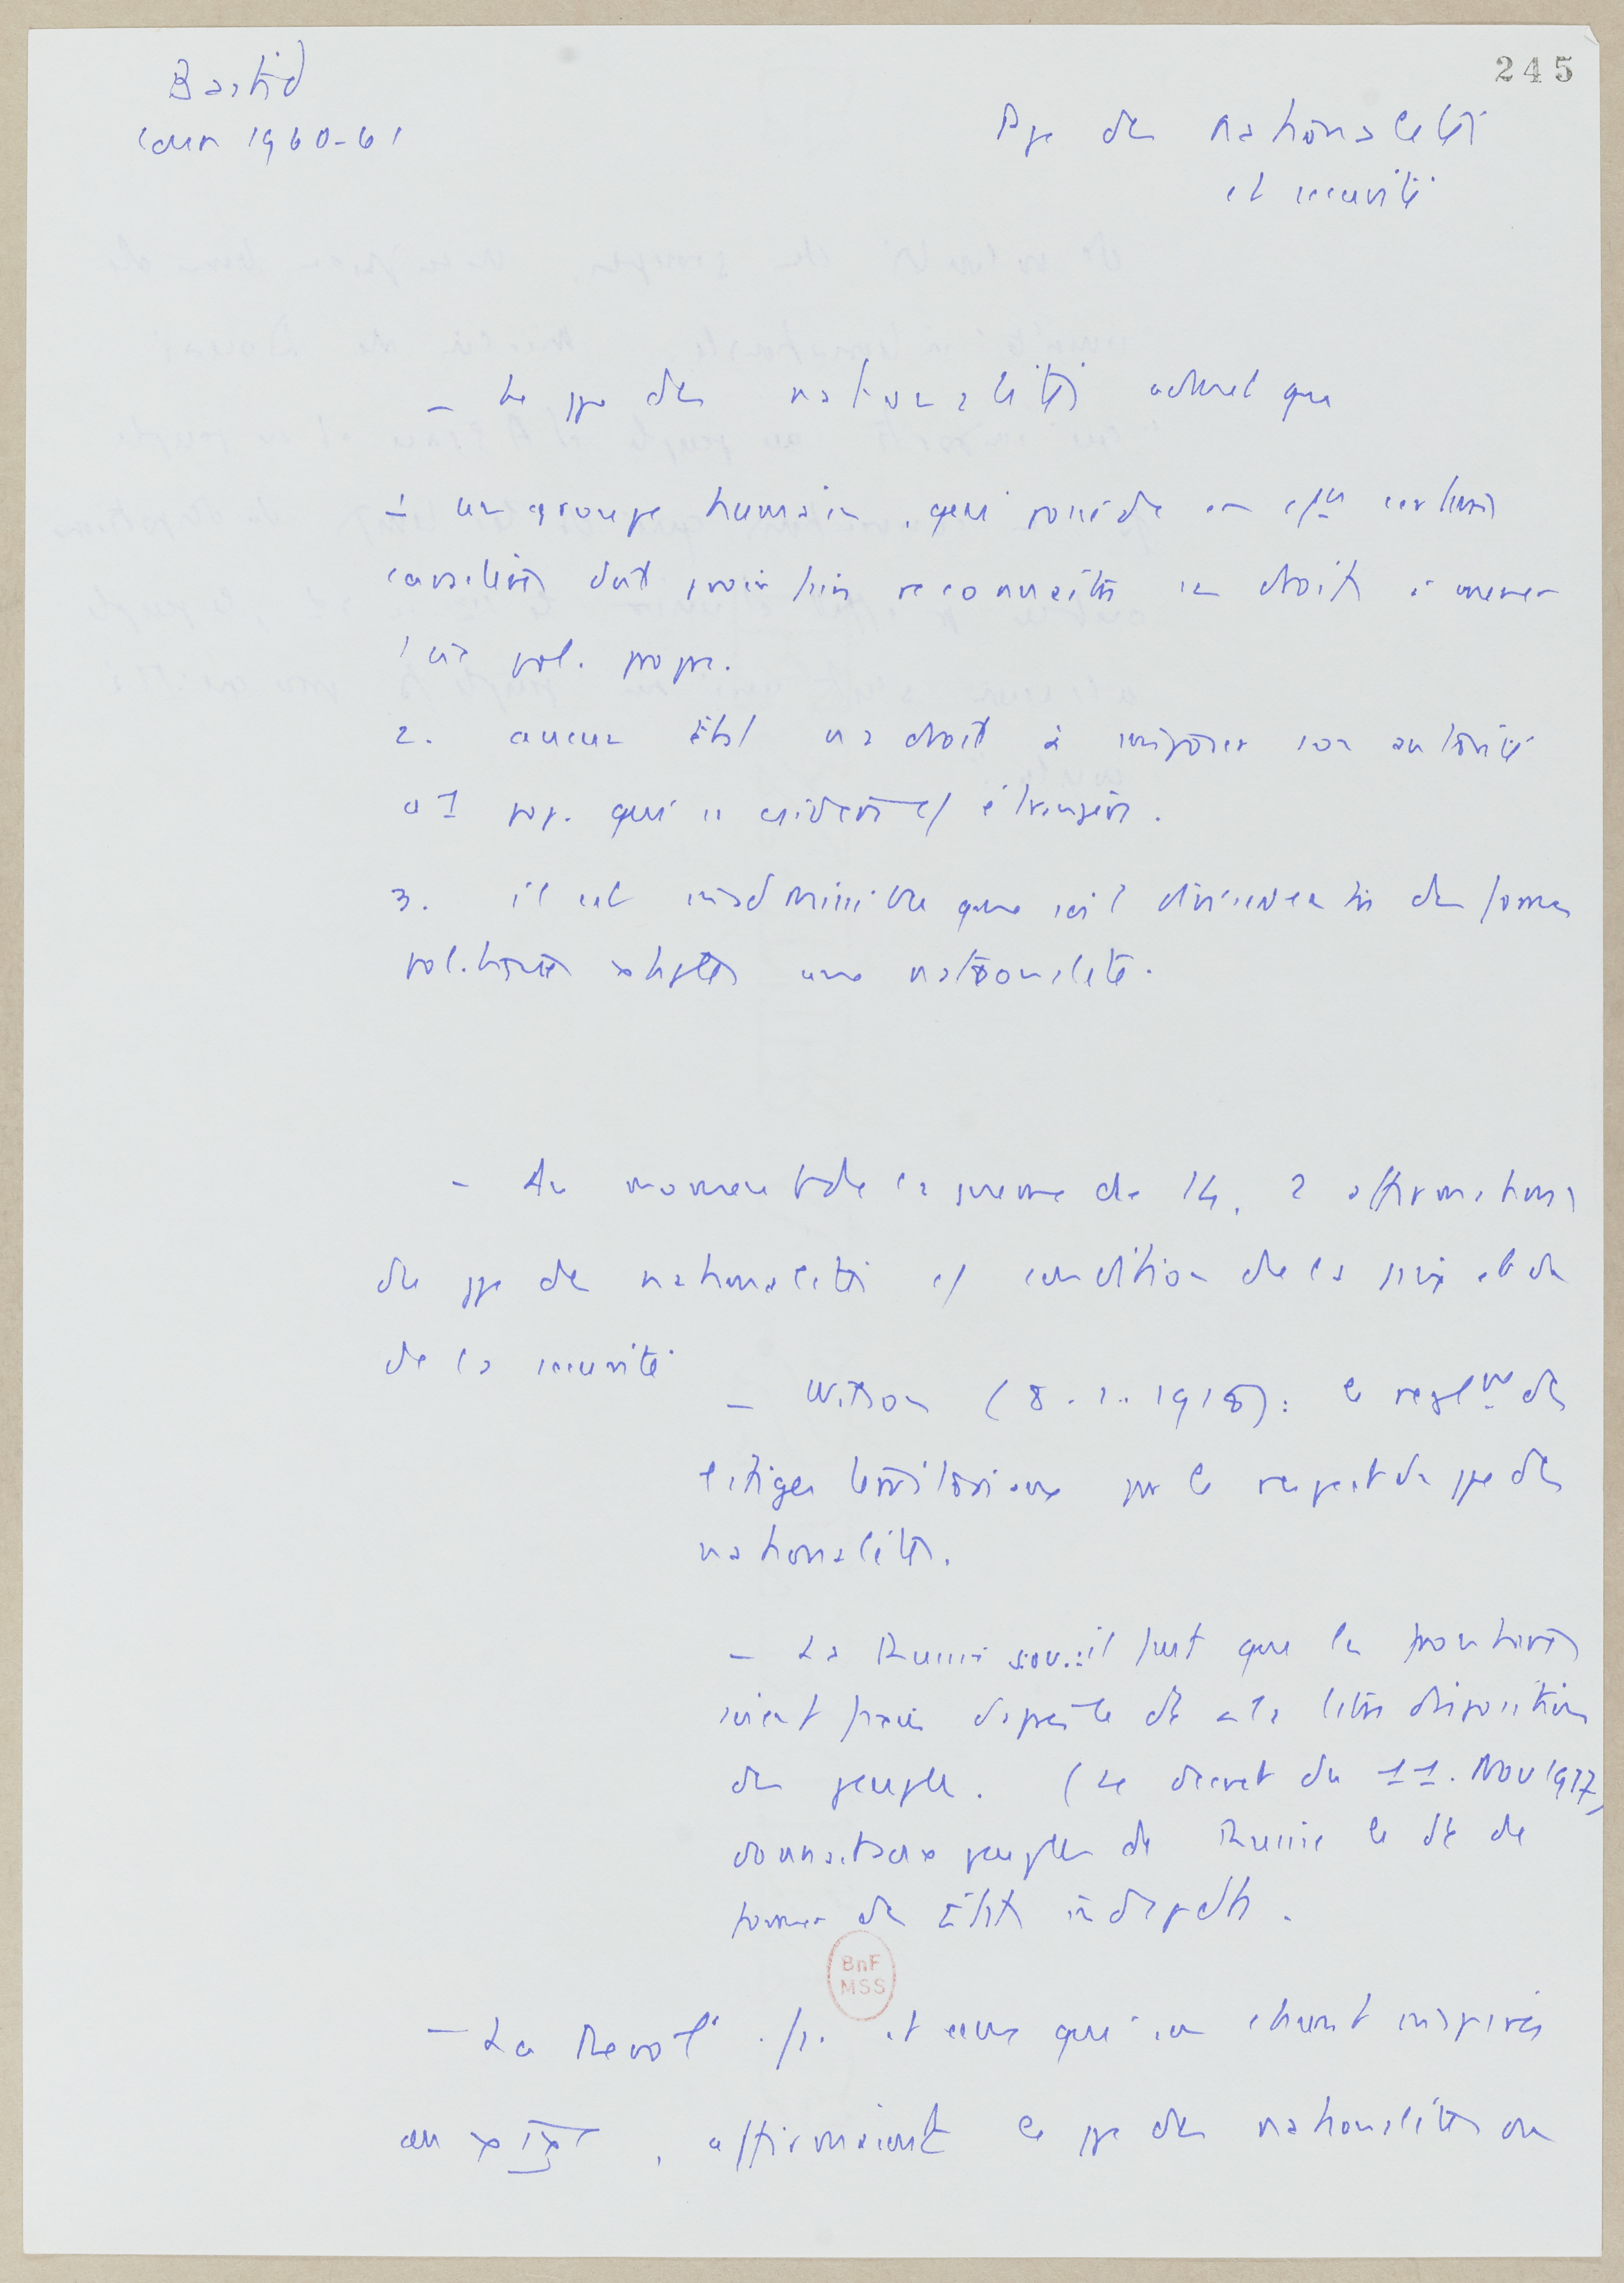 245
Bastid
Cours 1960-61
Ppe des nationalités
et sécurité
– Le ppe des nationalités admet que
1 un groupe humain, qui possède en certains
caractères doit voir reconnaître le droit à mener
vie pol. propre.
2. aucun État n'a droit à imposer son autorité
à 1 pop. qui se considère c/ étrangère.
3. il est inadmissible que soit divisée en des formes
politiques une nationalité.
– Au moment de la guerre de 14, 2 affirmations
du ppe des nationalités c/ condition de la paix et de
de la sécurité
– Wilson (8.1.1918): le reglnt des
litiges territoriaux par le respect du ppe des
nationalités.
– La Russie sov.: il faut que les frontières
soient d'après le dt à la libre disposition
des peuples. (Le décret du 11. Nov 1917,
donnait aux peuples de Russie le dt de
former des États indépdts.
– La Revol° fr. et ceux qui s'en étaient inspirés
au XIXe, affirmaient le ppe des nationalités ou
BnF
MSS